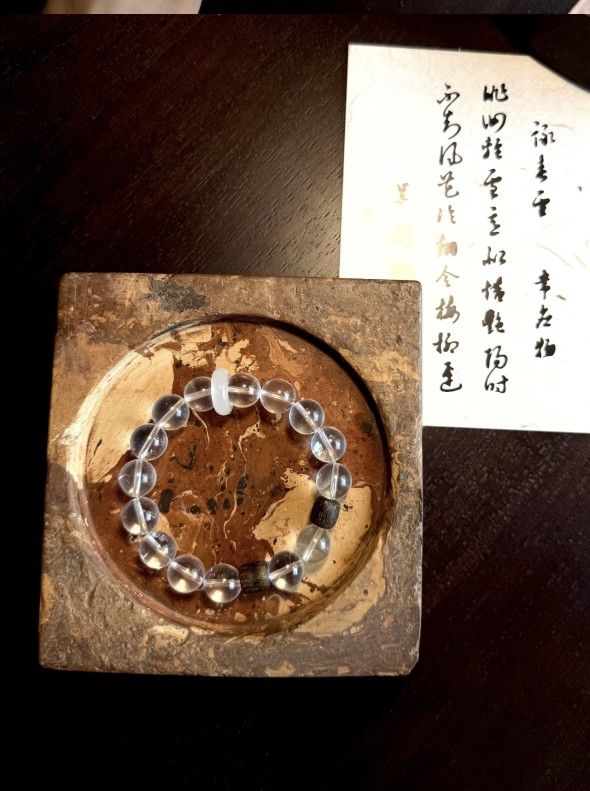 詠春雪 韋應物
徘徊輕雪意似惜艷陽時
不悟風花冷翻令梅柳遲